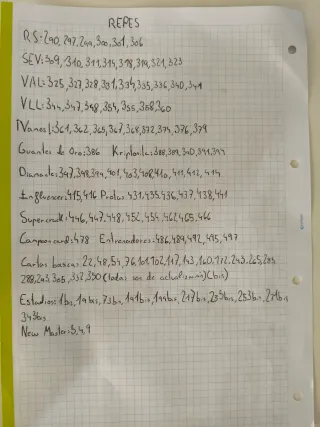 REPES
R.S: 290, 297, 299, 300, 301, 306
SEV: 309, 310, 311, 314, 318, 319, 321, 323
VAL: 325, 327, 328, 331, 334, 335, 336, 340, 341
VLL: 344, 347, 348, 354, 355, 358, 360
¡Vamos!: 361, 362, 365, 367, 368, 372, 374, 376, 379
Guantes de Oro: 386 Kriptonita: 388, 389, 390, 391, 394
Diamante: 397, 398, 399, 401, 403, 408, 410, 411, 412, 414
Influencer: 415, 416 Protas: 431, 435, 436, 437, 438, 441
Supercrack: 446, 447, 448, 452, 454, 462, 465, 466
Campeon card: 478 Entrenadores: 486, 489, 492, 495, 497
Cartas basicas: 22, 48, 54, 76, 101, 102, 117, 143, 160, 172, 243, 265, 285
288, 293, 305, 332, 350 (todas son de actualización) (bis)
Estadios: 1bis, 19bis, 73bis, 141bis, 144bis, 217bis, 235bis, 253bis, 271bis
343bis
New Master: 3, 4, 9